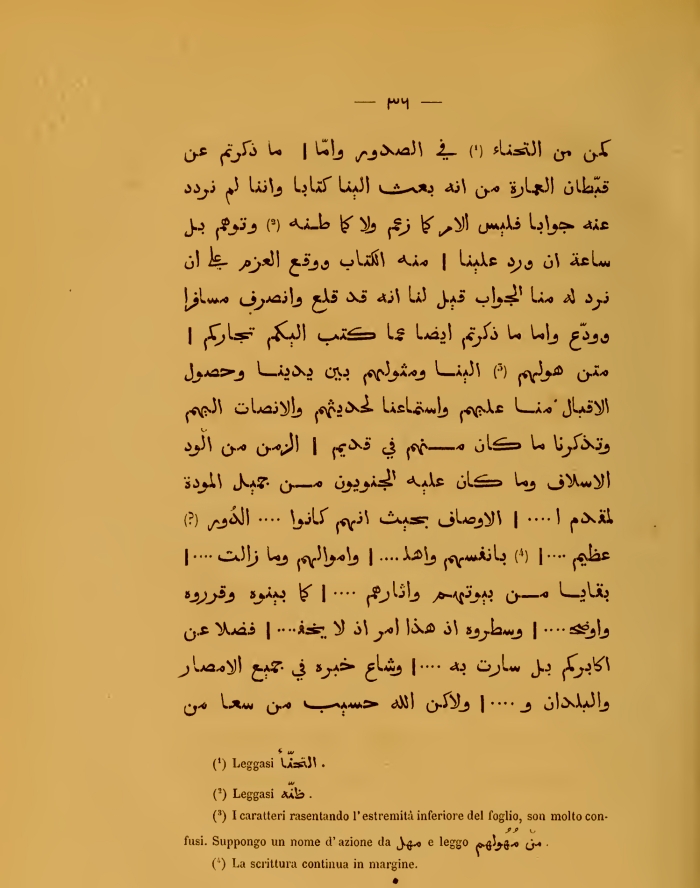 — ٣٦ —
كمن من التحناء (¹) في الصدور وامّا | ما ذكرتم عن
قبّطان العمارة من انه بعث الينا كتابا واننا لم نردد
عنه جوابا فليس الامر كما زعم ولا كما طنه (²) وتوهم بل
ساعة ان ورد علينا | منه الكتاب ووقع العزم على ان
نرد له منا الجواب قيل لنا انه قد قلع وانصرف مسافرا
وودّع واما ما ذكرتم ايضا عما كتب اليكم تجاركم |
متن هولهم (³) الينا ومثولهم بين يدينا وحصول
الاقبال منا عليهم واستماعنا لحديثهم والانصات اليهم
وتذكرنا ما كان منهم في قديم | الزمن من الود
الاسلاف وما كان عليه الجنويون من جميل المودة
لمقدم ا .... | الاوصاف بحيث انهم كانوا .... الدُور (?)
عظيم .... | (⁴) بانفسهم واهلـ .... | واموالهم وما زالت .... |
بقايا من بيوتهم واثارهم .... | كما بينوه وقرروه
واوضحـ .... | وسطروه اذ هذا امر اذ لا يخفـ .... | فضلا عن
اكابركم بل سارت به .... | وشاع خبره في جميع الامصار
والبلدان و .... | ولاكن الله حسيب من سعا من
(¹) Leggasi التحنّأ .
(²) Leggasi ظنّه .
(³) I caratteri rasentando l'estremità inferiore del foglio, son molto con-
fusi. Suppongo un nome d'azione da مهل e leggo منْ مُهُولهم .
(⁴) La scrittura continua in margine.